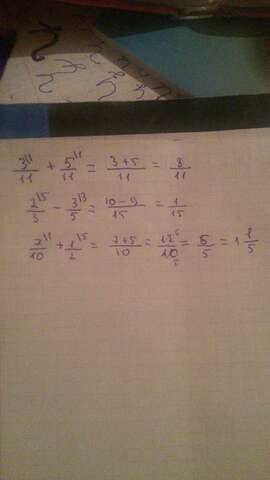 3^{\1}/11 + 5^{\1}/11 = 3+5/11 = 8/11
2^{\5}/3 - 3^{\3}/5 = 10-9/15 = 1/15
7^{\1}/10 + 1^{\5}/2 = 7+5/10 = 12^{6}/10_{5} = 6/5 = 1 1/5